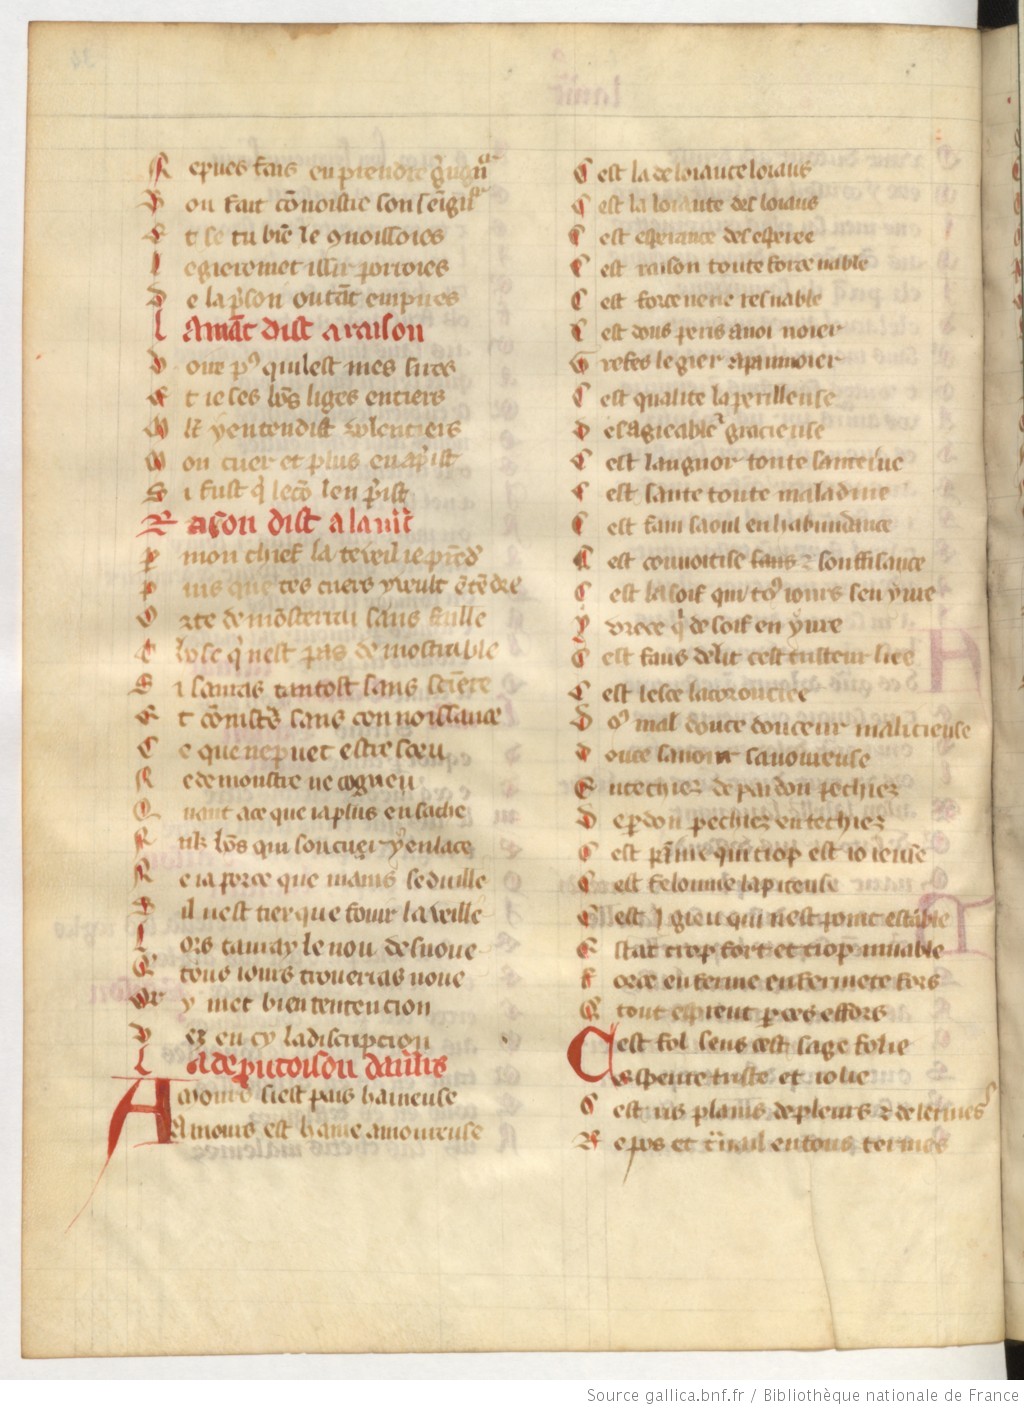 R epues fais en prendre
D ou fait cõnoistre son seign
E t se tu biẽ le 9noissoies
L egieremet issir porroies
D e la pͥson ou tãt empires
L amãt dist a raison
D ame pͬ quil est mes sires
E t ie ses hõs liges entiers
M lt y entendist volentiers
M on cuer et plus en apͥst
S i fust qͥ lecõ len pͥst
R aison dist a lamãt
P mon chief la te veil ie
P uis que tes cuers y veult ẽtẽdre
O rte demõsterrai sans faille
C hose qͥ nest pas demostrable
S i sairas tantost sans sciẽce
E t cõnistẽs sans connoissance
C e que ne puet estre sceu
N e demonstre ne cogneu
Q uant a ce que ia plus en sache
N uls hõs qui son cuer y enlace
N e ia por ce que mains se duille
S il nest tiex que fouir la veille
L ors tauray le nou desnoue
Q tous iours trouerras noue
Or y met bien tentencion
V ez en cy la discripcion
L a descripcion damours
A mours si est pais haineuse
A mours est haine amoureuse
C est la desloiaute loiaus
C est la loiaute desloiaus
C est esperance desesperee
C est raison toute forcenable
C est forcenerie resnable
C est dous peris a noi noier
G riefes legier a paumoier
C est qualite la perilleuse
D esagreable gracieuse
C est languor toute santeiue
C est sante toute maladiue
C est fain saoul en habundance
C est conuoitise sans souffisance
C est la soif qui toͬ iours sen yure
Y vrece qͥ de soif en yure
C est faus delit cest tristeur liee
C est lesce la corouciee
D oͬ mal douce douceur malicieuse
D ouce sauour sauoureuse
E ntechiez de pardon pechiez
D e perdon pechiez entechiez
C est paine qui trop est ioieuse
C est felounie la piteuse
C est j gieu qui nest point estable
E stat trop fort et trop muable
F orce enferme enfermete fors
Q tout esment par ces effors
C est fol sens cest sage folie
P sperite triste et iolie
C est ris plains de pleurs & de lermes
R epos et trauail en tous termes
Source gallica.bnf.fr / Bibliothèque nationale de France